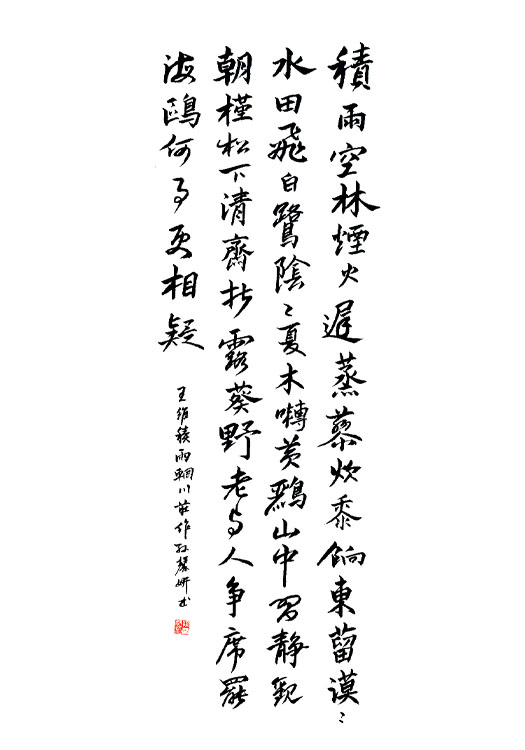 積雨空林煙火遲蒸藜炊黍餉東菑漠〻
水田飛白鷺陰〻夏木囀黃鸝山中習靜觀
朝槿松下清齋折露葵野老与人爭席罷
海鷗何事更相疑
王維積雨輞川莊作孫馨妍书